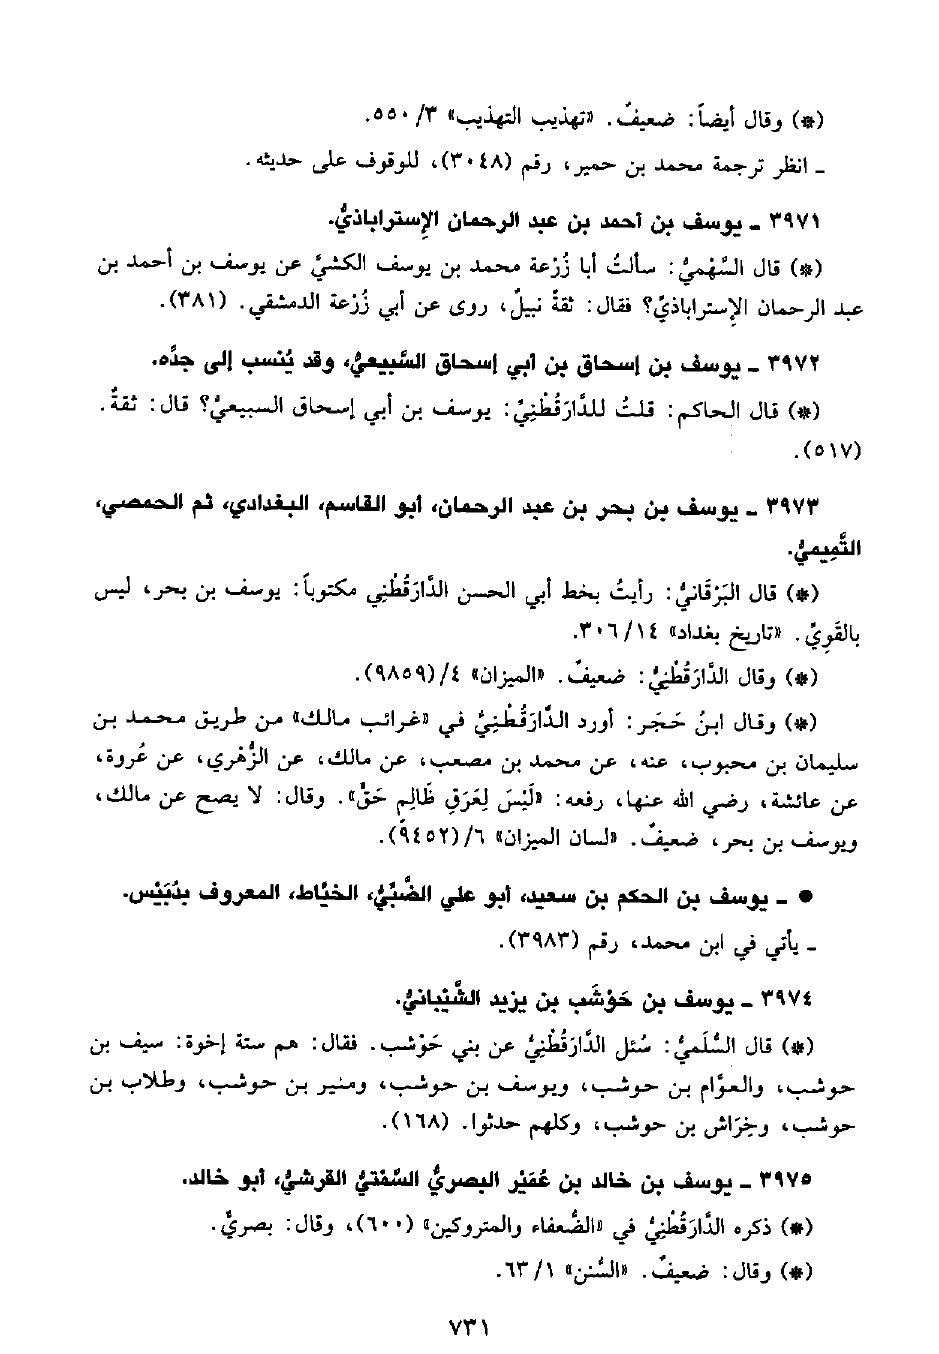 (*) وقال أيضاً: ضعيفٌ. «تهذيب التهذيب» ٣/ ٥٥٠.
ـ انظر ترجمة محمد بن حمير، رقم (٣٠٤٨)، للوقوف على حديثه.
٣٩٧١ ـ يوسف بن أحمد بن عبد الرحمان الإِستراباذيُّ.
(*) قال السَّهْميُّ: سألتُ أبا زُرْعة محمد بن يوسف الكشيَّ عن يوسف بن أحمد بن
عبد الرحمان الإِستراباذيِّ؟ فقال: ثقةٌ نبيلٌ، روى عن أبي زُرْعة الدمشقي. (٣٨١).
٣٩٧٢ ـ يوسف بن إسحاق بن أبي إسحاق السَّبيعيُّ، وقد يُنسب إلى جدِّه.
(*) قال الحاكم: قلتُ للدَّارَقُطْنِيِّ: يوسف بن أبي إسحاق السبيعيُّ؟ قال: ثقةٌ.
(٥١٧).
٣٩٧٣ ـ يوسف بن بحر بن عبد الرحمان، أبو القاسم، البغدادي، ثم الحمصي،
التَّمِيميُّ.
(*) قال البَرْقَانيُّ: رأيتُ بخط أبي الحسن الدَّارَقُطْنِي مكتوباً: يوسف بن بحر، ليس
بالقَوِيِّ. «تاريخ بغداد» ١٤/ ٣٠٦.
(*) وقال الدَّارَقُطْنِيُّ: ضعيفٌ. «الميزان» ٤/ (٩٨٥٩).
(*) وقال ابنُ حَجَر: أورد الدَّارَقُطْنِيُّ في «غرائب مالك» من طريق محمد بن
سليمان بن محبوب، عنه، عن محمد بن مصعب، عن مالك، عن الزُّهْري، عن عُروة،
عن عائشة، رضي الله عنها، رفعه: «لَيْسَ لِعَرَقِ ظَالِمٍ حَقٌّ». وقال: لا يصح عن مالك،
ويوسف بن بحر، ضعيفٌ. «لسان الميزان» ٦/ (٩٤٥٢).
● ـ يوسف بن الحكم بن سعيد، أبو علي الضَّبِّيُّ، الخيَّاط، المعروف بدُبَيْس.
ـ يأتي في ابن محمد، رقم (٣٩٨٣).
٣٩٧٤ ـ يوسف بن حَوْشَب بن يزيد الشَّيْبانيُّ.
(*) قال السُّلَميُّ: سُئل الدَّارَقُطْنِيُّ عن بني حَوْشب. فقال: هم ستة إخوة: سيف بن
حوشب، والعوَّام بن حوشب، ويوسف بن حوشب، ومنير بن حوشب، وطلاب بن
حوشب، وخِرَاش بن حوشب، وكلهم حدثوا. (١٦٨).
٣٩٧٥ ـ يوسف بن خالد بن عُمَيْر البصريُّ السَّمْتيُّ القرشيُّ، أبو خالد.
(*) ذكره الدَّارَقُطْنِيُّ في «الضُّعفاء والمتروكين» (٦٠٠)، وقال: بصريٌّ.
(*) وقال: ضعيفٌ. «السُّنن» ١/ ٦٣.
٧٣١